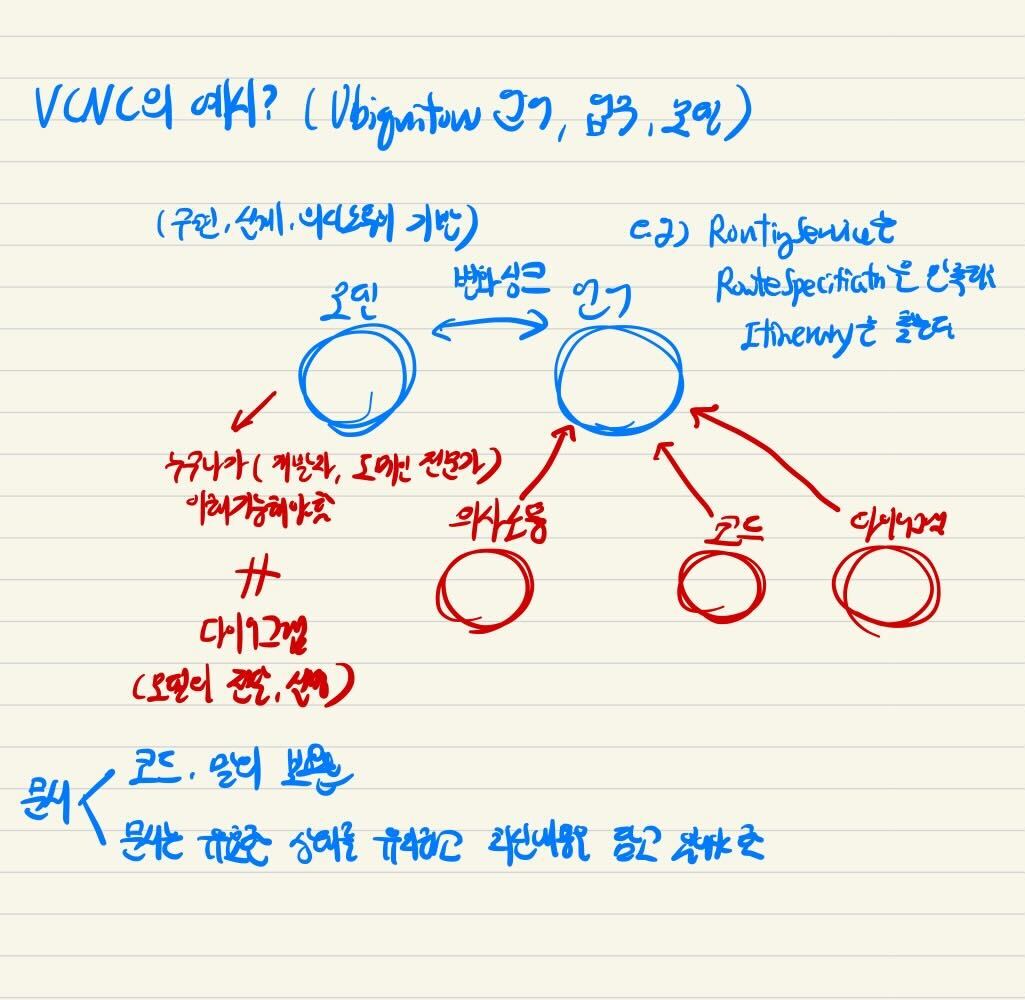 VCNC의 예시? (Ubiquitous 언어, 업무, 모델)
(구현, 설계, 의사소통의 기반)
e.g) RoutingService는
RouteSpecification은 만족하는
Itinerary를 찾는다
모델
변화 싱크
언어
누구나가 (개발자, 도메인 전문가)
이해가능해야 함
의사소통
코드
다이어그램
다이어그램
(모델의 전달, 설명)
문서
코드, 말의 보완
문서는 유효한 상태를 유지하고 최신내용을 담고 있어야 함